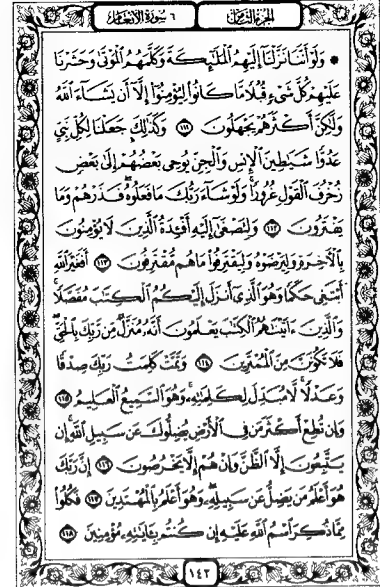 الجزء الثامن ٦ سورة الأنعام
۞ وَلَوْ أَنَّنَا نَزَّلْنَا إِلَيْهِمُ ٱلْمَلَٰٓئِكَةَ وَكَلَّمَهُمُ ٱلْمَوْتَىٰ وَحَشَرْنَا
عَلَيْهِمْ كُلَّ شَىْءٍ قُبُلًا مَّا كَانُوا۟ لِيُؤْمِنُوٓا۟ إِلَّآ أَن يَشَآءَ ٱللَّهُ
وَلَٰكِنَّ أَكْثَرَهُمْ يَجْهَلُونَ ١١١ وَكَذَٰلِكَ جَعَلْنَا لِكُلِّ نَبِىٍّ
عَدُوًّا شَيَٰطِينَ ٱلْإِنسِ وَٱلْجِنِّ يُوحِى بَعْضُهُمْ إِلَىٰ بَعْضٍ
زُخْرُفَ ٱلْقَوْلِ غُرُورًا وَلَوْ شَآءَ رَبُّكَ مَا فَعَلُوهُ فَذَرْهُمْ وَمَا
يَفْتَرُونَ ١١٢ وَلِتَصْغَىٰٓ إِلَيْهِ أَفْـِٔدَةُ ٱلَّذِينَ لَا يُؤْمِنُونَ
بِٱلْءَاخِرَةِ وَلِيَرْضَوْهُ وَلِيَقْتَرِفُوا۟ مَا هُم مُّقْتَرِفُونَ ١١٣ أَفَغَيْرَ ٱللَّهِ
أَبْتَغِى حَكَمًا وَهُوَ ٱلَّذِىٓ أَنزَلَ إِلَيْكُمُ ٱلْكِتَٰبَ مُفَصَّلًا
وَٱلَّذِينَ ءَاتَيْنَٰهُمُ ٱلْكِتَٰبَ يَعْلَمُونَ أَنَّهُۥ مُنَزَّلٌ مِّن رَّبِّكَ بِٱلْحَقِّ
فَلَا تَكُونَنَّ مِنَ ٱلْمُمْتَرِينَ ١١٤ وَتَمَّتْ كَلِمَتُ رَبِّكَ صِدْقًا
وَعَدْلًا لَّا مُبَدِّلَ لِكَلِمَٰتِهِۦ وَهُوَ ٱلسَّمِيعُ ٱلْعَلِيمُ ١١٥
وَإِن تُطِعْ أَكْثَرَ مَن فِى ٱلْأَرْضِ يُضِلُّوكَ عَن سَبِيلِ ٱللَّهِ إِن
يَتَّبِعُونَ إِلَّا ٱلظَّنَّ وَإِنْ هُمْ إِلَّا يَخْرُصُونَ ١١٦ إِنَّ رَبَّكَ
هُوَ أَعْلَمُ مَن يَضِلُّ عَن سَبِيلِهِۦ وَهُوَ أَعْلَمُ بِٱلْمُهْتَدِينَ ١١٧ فَكُلُوا۟
مِمَّا ذُكِرَ ٱسْمُ ٱللَّهِ عَلَيْهِ إِن كُنتُم بِـَٔايَٰتِهِۦ مُؤْمِنِينَ ١١٨
١٤٢